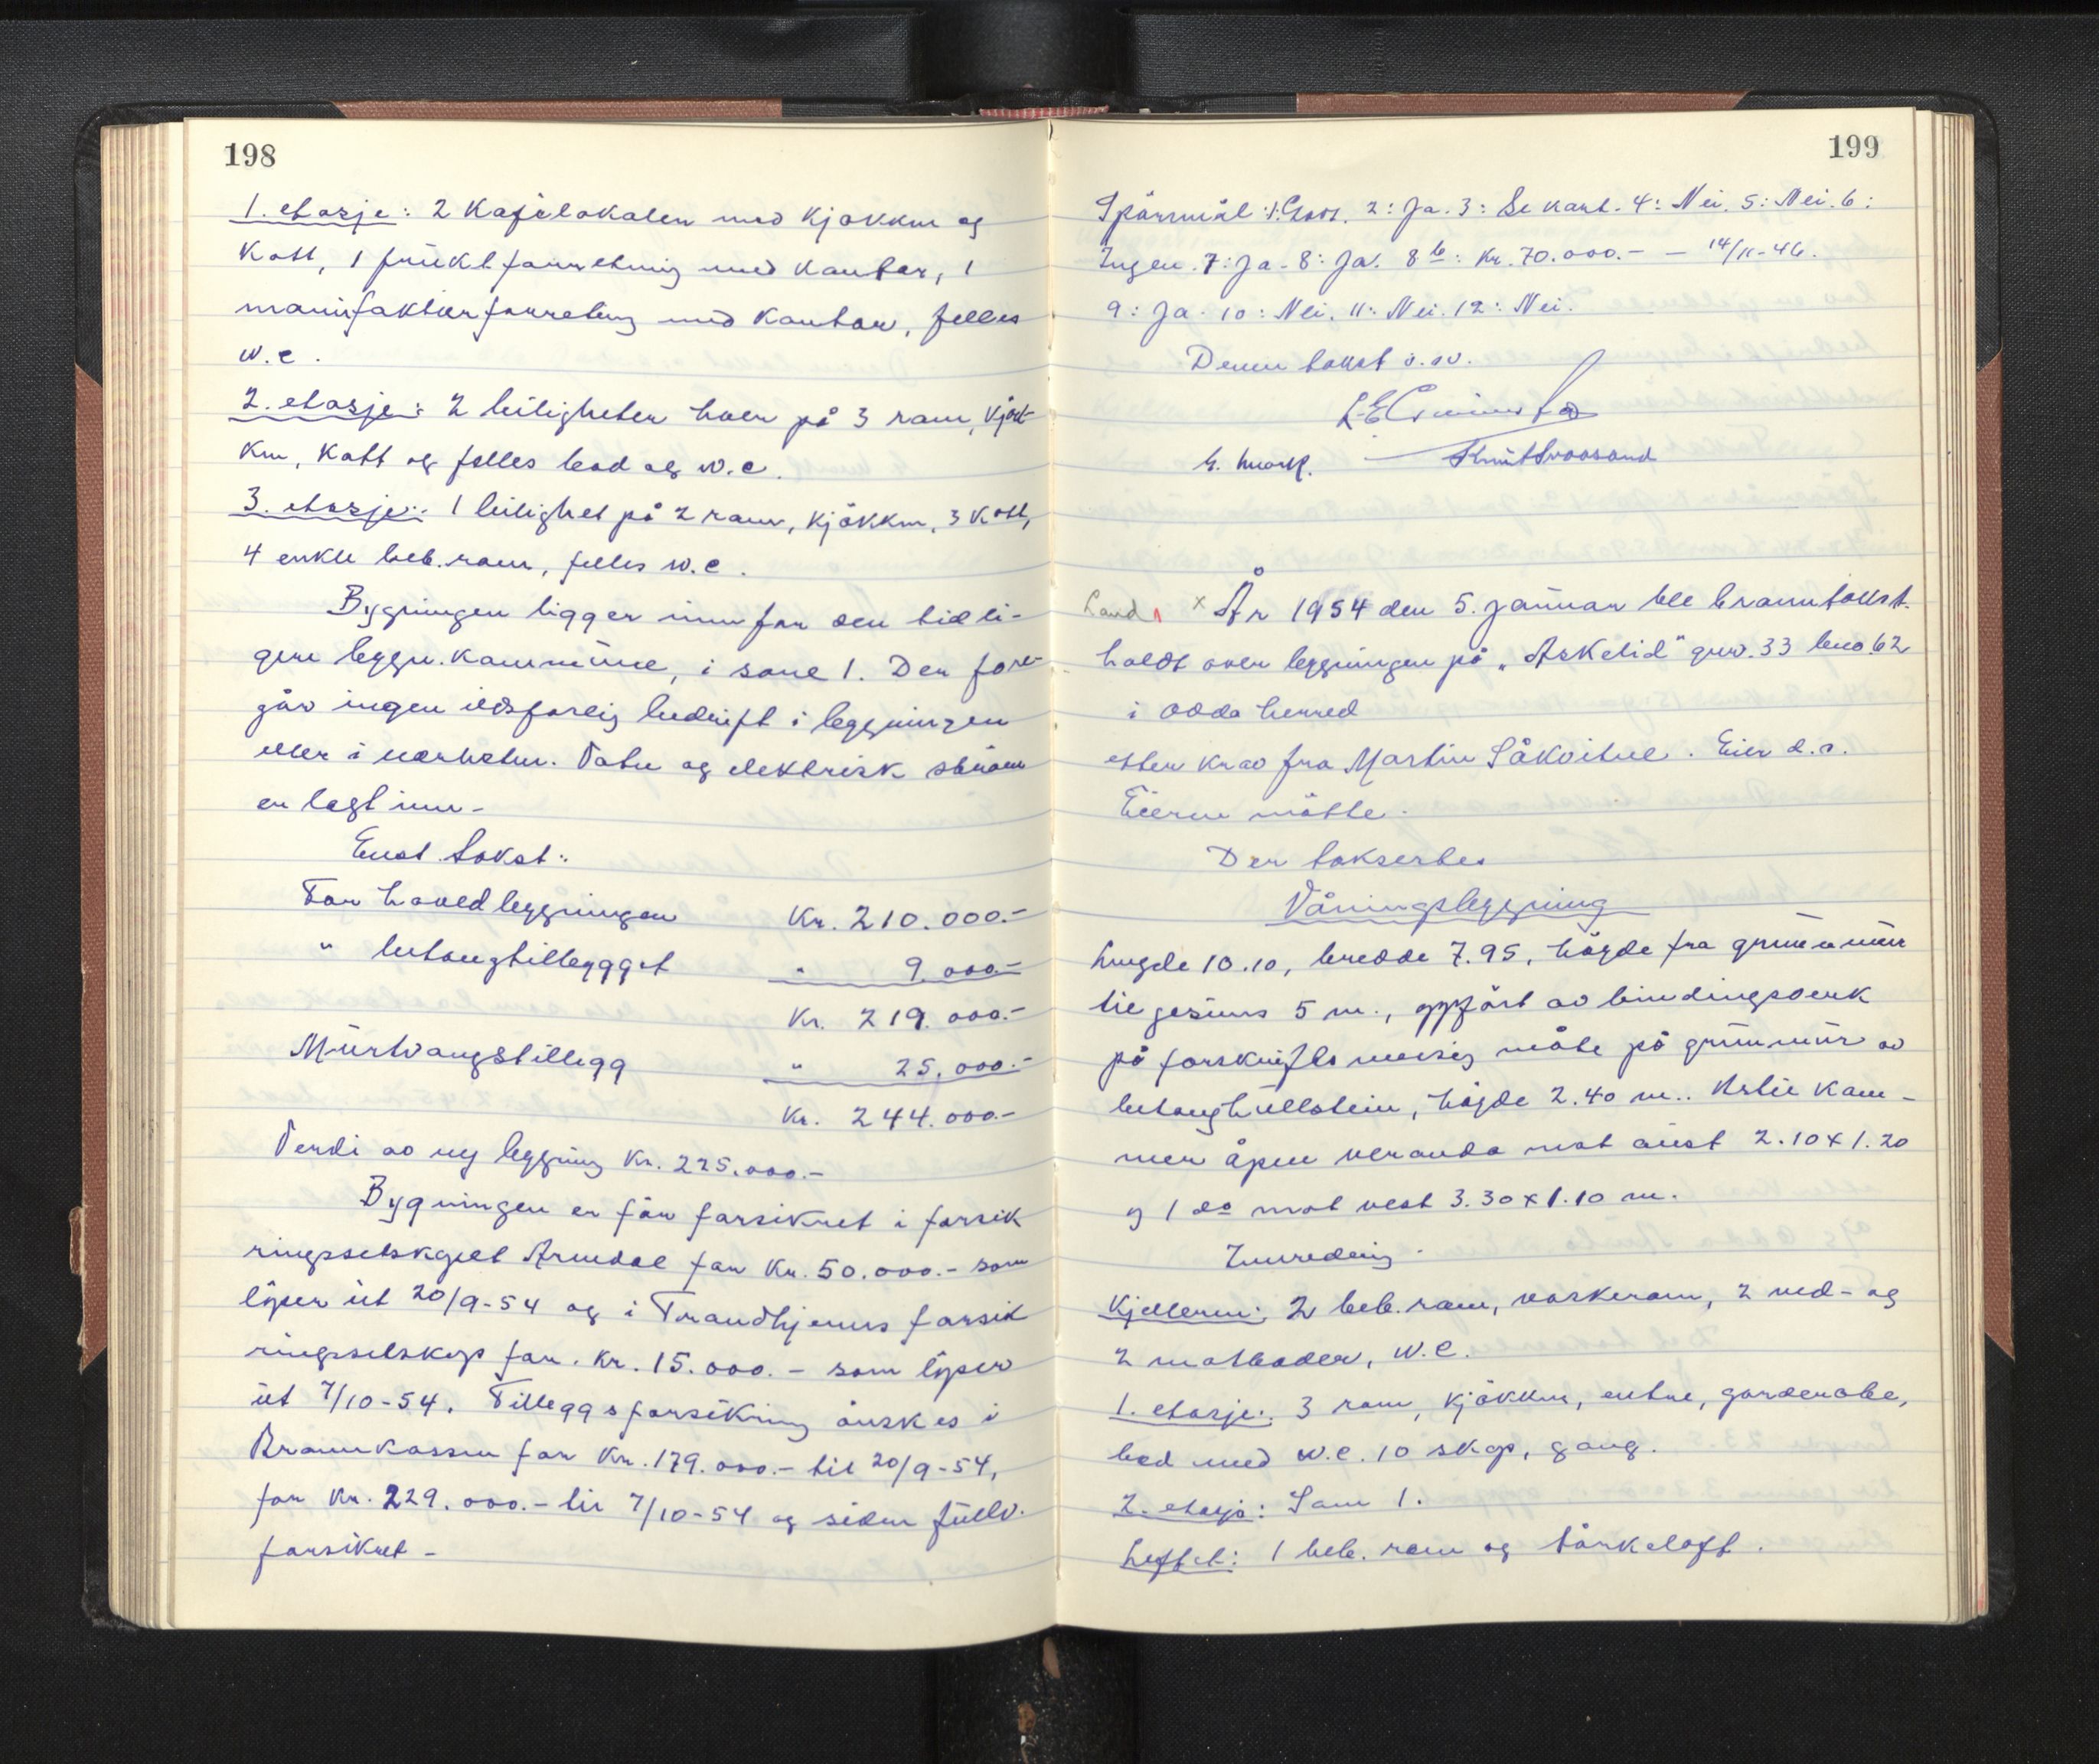 198
1. etasje: 2 kafelokaler med kjøkken og
kott, 1 fruktforretning med kontor, 1
manufakturforretning med kontor, felles
w.c.
2. etasje: 2 leiligheter hver på 3 rom, kjøk-
ken, kott og felles bad og w.c.
3. etasje: 1 leilighet på 2 rom, kjøkken, 3 kott,
4 enkle beb. rom, felles w.c.
Bygningen ligger innfor den tidli-
gere bygn. kommune, i sone 1. Der fore-
går ingen ildsfarlig bedrift i bygningen
eller i nærheten. Vatn og elektrisk strøm
er lagt inn.
Enst. takst:
For hovedbygningen Kr. 210.000.-
" betongtillegget " 9.000.-
Kr. 219.000.-
Murtvangstillegg " 25.000.-
Kr. 244.000.-
Verdi av ny bygning Kr. 225.000.-
Bygningen er før forsikret i forsik
ringsselskapet Arendal for Kr. 50.000.- som
løper ut 20/9-54 og i Trondhjems forsik
ringsselskap for Kr. 15.000.- som løper
ut 7/10-54. Tilleggsforsikring ønskes i
Brannkassen for Kr. 179.000.- til 20/9-54,
for Kr. 229.000.- til 7/10-54 og siden fullv.
forsikret -
199
Spørsmål: 1: 2: Ja. 3: Se kart. 4: Nei. 5: Nei. 6:
Ingen. 7: Ja. 8: Ja. 8 b: Kr. 70.000.- - 14/11-46.
9: Ja. 10: Nei. 11: Nei. 12: Nei.
Denne takst o.sv.
Land x År 1954 den 5. januar ble branntakst
holdt over bygningen på „Askelid" gnr. 33 bno 62
i Odda herred
etter krav fra Martin Såkvitne. Eier d.s.
Eieren møtte.
Der taksertes
Våningsbygning
Lengde 10.10, bredde 7.95, høgde fra grunnmur
til gesims 5 m., oppført av bindingsverk
på forskriftsmessig måte på grunnmur av
betonghullstein, høgde 2.40 m.. Attil kom-
mer åpen veranda mot aust 2.10 x 1.20
og 1 do mot vest 3.30 x 1.10 m.
Innredning.
Kjelleren: 2 beb. rom, vaskerom, 2 ved- og
2 matboder, w.c.
1. etasje: 3 rom, kjøkken, entre, garderobe,
bad med w.c. 10 skap, gang.
2. etasje: Som 1.
Loftet: 1 beb. rom og tørkeloft.